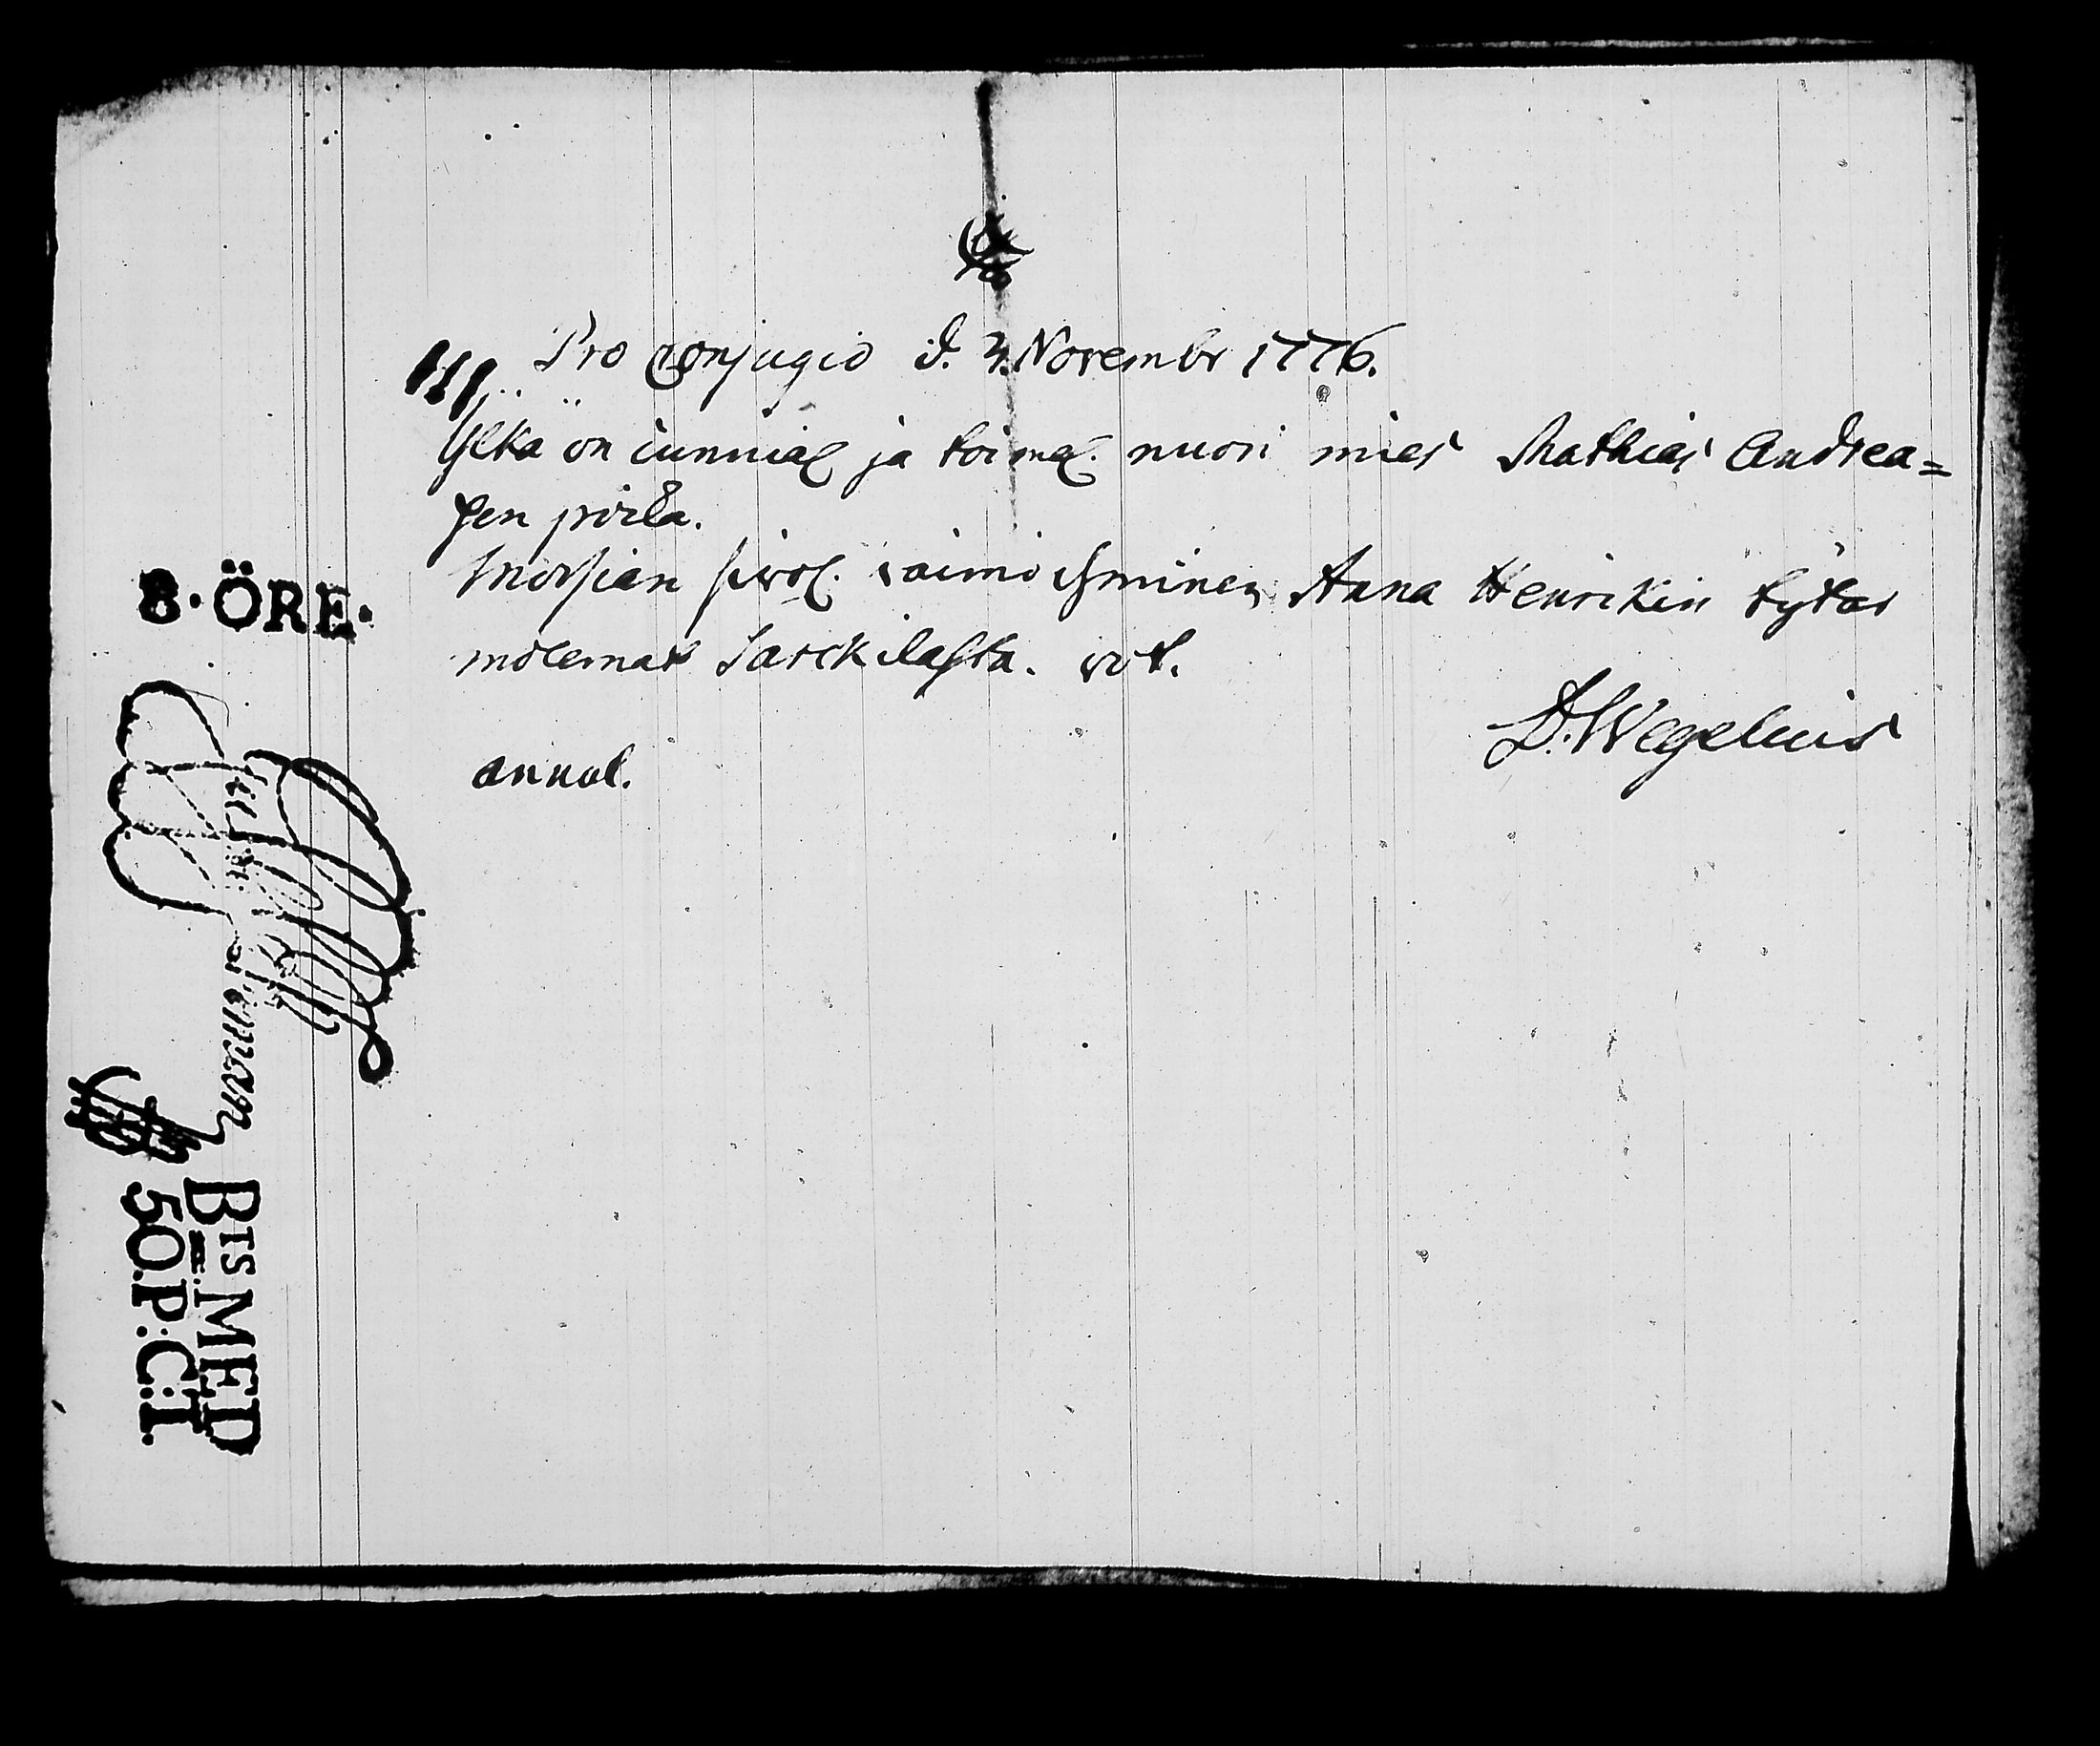 Pro Conjugio d. 3. Novembr 1776.
Ylkä on cunnial ja toimel. nuori mies Mathias Andrea=
sen poica.
Morsian siwol. waimo ihminen Anna Henrikin tytär
molemat Sarckilasta. vt.
D. Wegelius
annal.
8·ÖRE·
BTS MED
50.P:C:T.